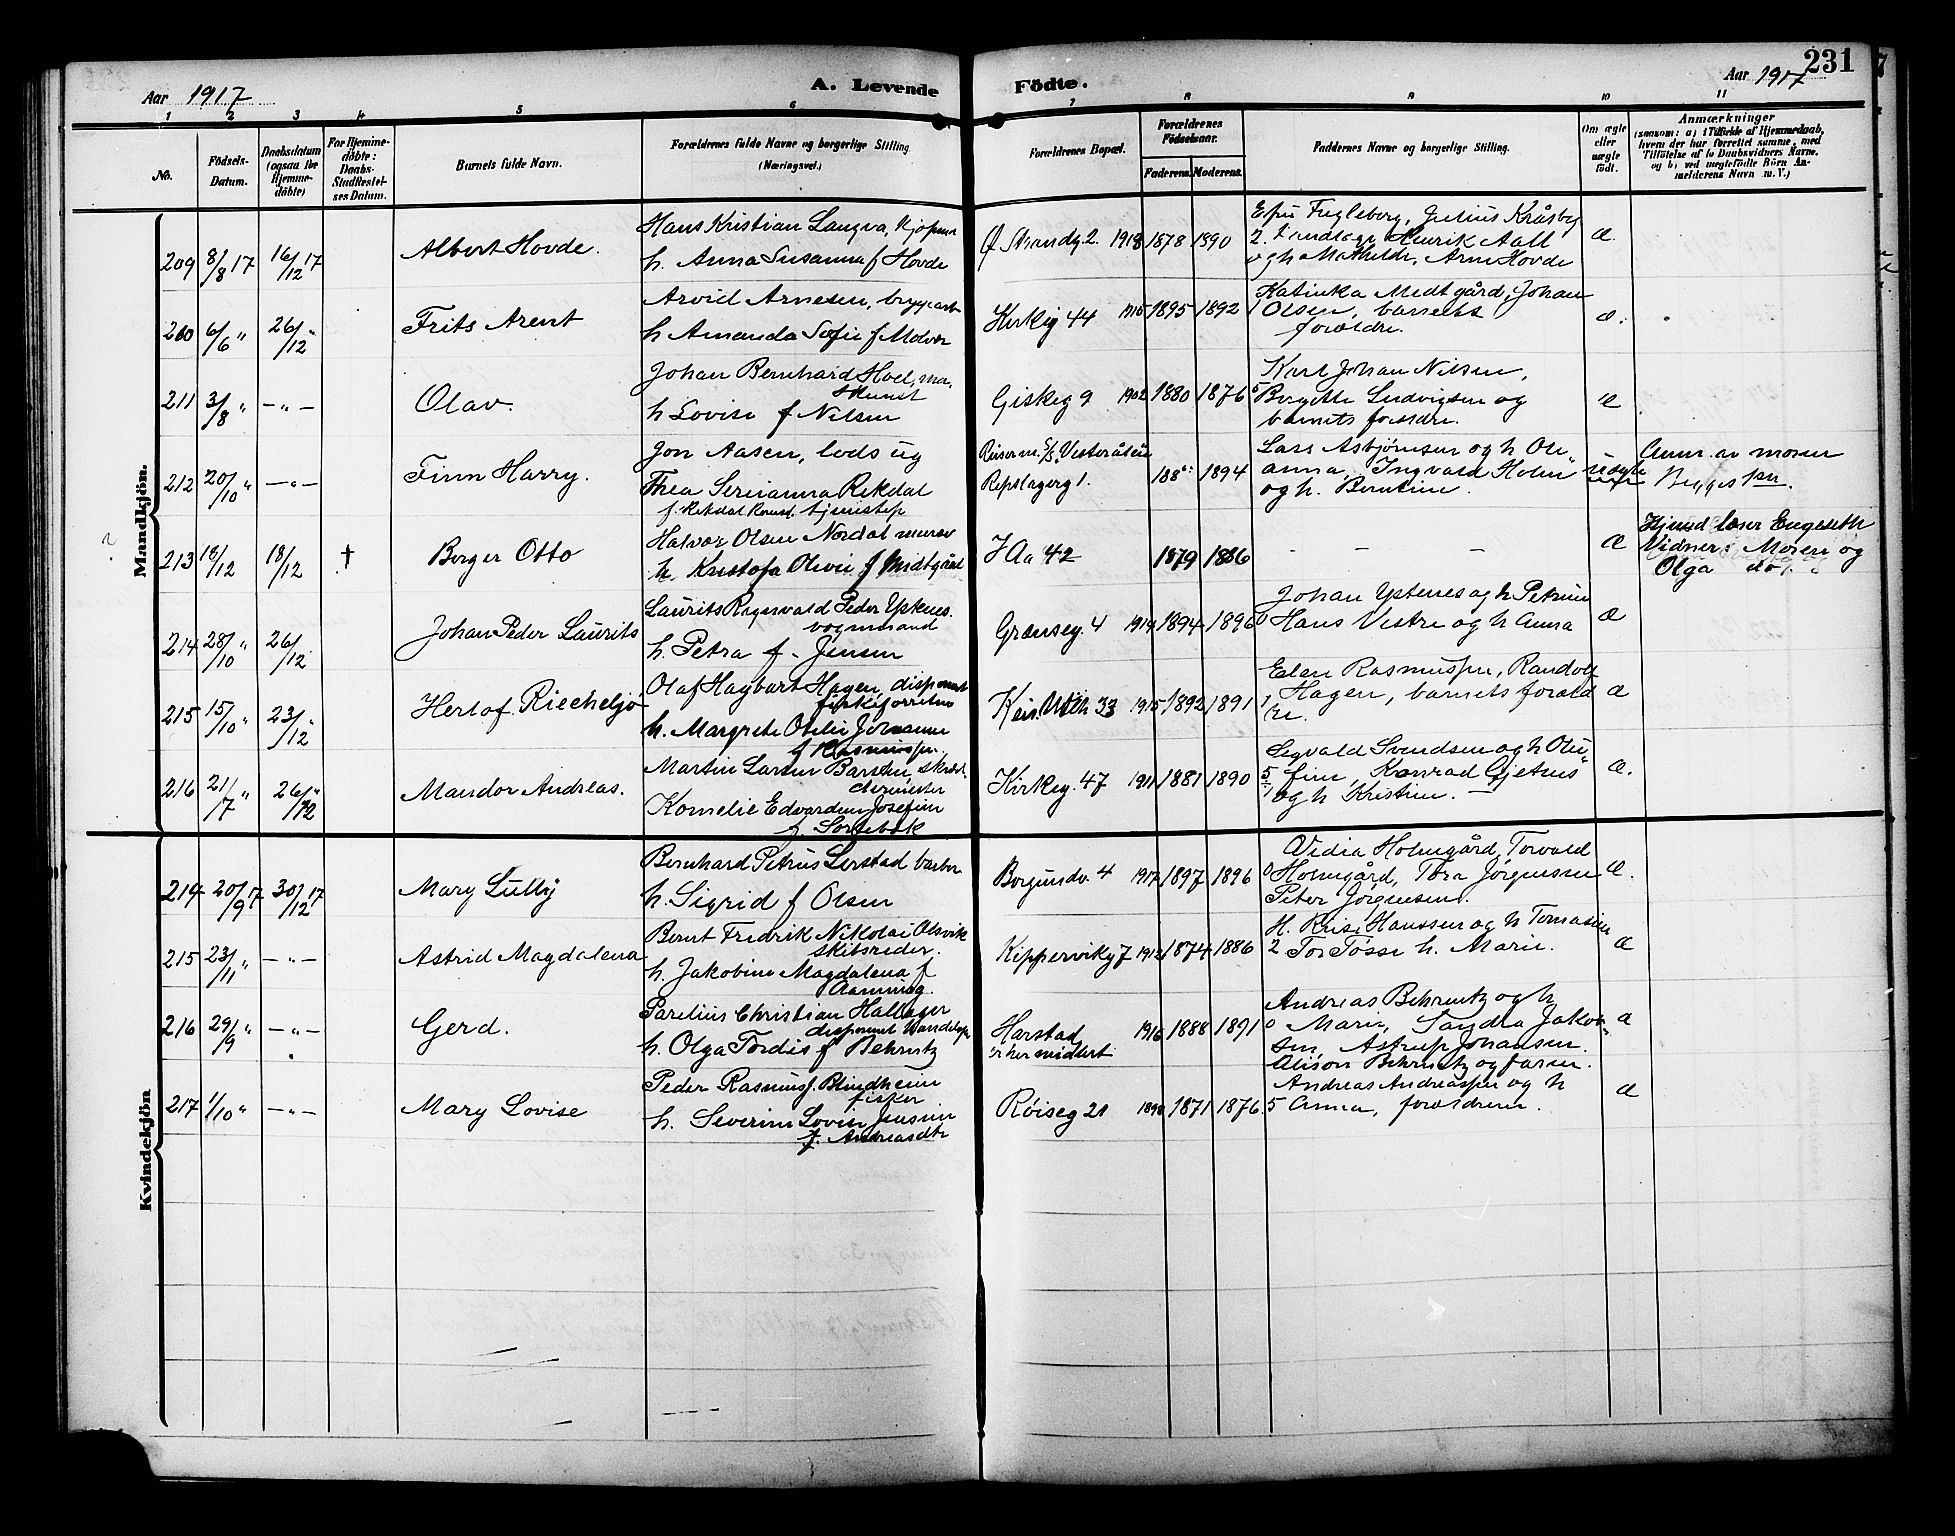 231
Aar 1917
A. Levende
Födte.
Aar 1917
1 2 3 4 5 6 7 8 9 10 11
No.
Födsels-
Datum.
Daabsdatum
(ogsaa for
Hjemme-
döbte)
For Hjemme-
döbte:
Daabs-
Stadfæstel-
ses Datum.
Barnets fulde Navn.
Forældrenes fulde Navne og borgerlige Stilling
(Næringsvei.)
Forældrenes Bopæl.
Forældrenes
Födselsaar.
Faderens. Moderens.
Faddernes Navne og borgerlige Stilling.
Om ægte
eller
uægte
födt.
Anmærkninger
(saasom: a) i Tilfælde af Hjemmedaab,
hvem der har forrettet samme, med
Tilföielse af to Daabsvidners Navne,
og b) ved uægtefödte Börn An-
melderens Navn m. V.)
Mandkjön.
209 8/8 17 16/12 17 Albert Hovde.
Hans Kristian Langva,
h. Anna Susanna f Hovde
Ø Strandg. 2. 1918 1878 1890
Fugleberg, Julius Kråsby
2. Henrik Aall
og h Mathilde, Arne Hovde
æ.
210 6/6 " 26/12 " Frits Arent
Arvid Arnesen,
h Amanda Sofie f Molvær
Kirkeg 44 1915 1895 1892
Katinka Medtgård, Johan
1 Olsen, barnets
forældre.
æ.
211 3/8 " — " — Olav.
Johan Bernhard Hoel, ma-
skinist
h Lovise f Nilsen
Giskeg 9 1902 1880 1876
Karl Johan Nilsen,
5 Birgitte Ludvigsen og
barnets forældre.
æ
212 20/10 " — " — Finn Harry.
Jon Aasen, lods ug
Thea Serianna Rekdal
f. Rekdal Romsd. tjenestep
Reiser m. D/S. Vesterålen
Repslagerg 1. 188 1894
Lars Asbjørnsen og h Ole-
anna, Ingvald Holm
og h. Berntine.
uægte
Anm. av moren
Begges 1ste.
213 18/12 18/12 † Borger Otto
Halvor Olsen Nordal murer
h. Kristofa Olivie f Midtgård
I Aa 42 1879 1886
— — —
æ
Hjmd læser Engeseth
Vidner: Moren og
Olga do.
214 28/10 " 26/12. Johan Peder Laurits
Laurits Ragnvald Peder Ystenes.
vognmand
h. Petra f. Jensen
Grænseg. 4 1914 1894 1896
Johan Ystenes og h Petrine
0 Hans Vestre og h Anna
æ
215 15/10 " 23/12 " Herlof Riechelsjø
Olaf Hagbart Hagen, disponent
fiskeforretn
h. Margrete Otelie Johanne
f Rasmussen.
Keis. Wilh 33 1915 1892 1891
Elen Rasmussen, Randolf
1 Hagen, barnets foræld
re.
æ
216 21/7 " 26/12 " Mandor Andreas.
Martin Larsen Barsten, skræd-
dermester
Kornelie Edvardine Josefine
f. Sortebøk
Kirkeg. 47 1911 1881 1890
Sigvald Svendsen og h Oli-
5/1 fine, Konrad Gjetnes
og h Kristine. —
æ.
Kvindekjön
214 20/9 17 30/12 17 Mary Lully
Bernhard Petrus Lerstad barber
h. Sigrid f Olsen
Borgundv. 4 1917 1897 1896
Vidia Holmgård, Torvald
0 Holmgård, Tora Jørgensen
Peter Jørgensen.
æ.
215 23/11 " — " — Astrid Magdalena
Bernt Fredrik Nikolai Olsvik
skibsreder.
h. Jakobine Magdalena f
Aamning.
Kippervikg 7 1912 1874 1886
H. Kris. Hanssen og h Tomasine
2 Tor Tøsse h. Marie.
æ
216 29/9 " — " — Gerd.
Parelius Christian Hallager
disponent Handelsf
h. Olga Tordis f Behrentz
Harstad
er her midlert 1916 1888 1891
Andreas Behrentz og h
0 Marie, Sandra Jakob-
sen, Astrup Johansen.
Alison Behrentz og faren.
æ
217 1/10 " — " — Mary Lovise
Peder Rasmus. Blindheim
fisker
h. Severine Lovise Jensine
f. Andreasdtr
Røiseg 21 1898 1871 1876
Andreas Andreassen og h
5 Anna, forældrene.
æ